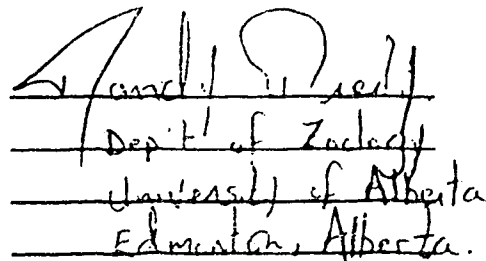 Dep't of Zoology
University of Alberta
Edmonton, Alberta.